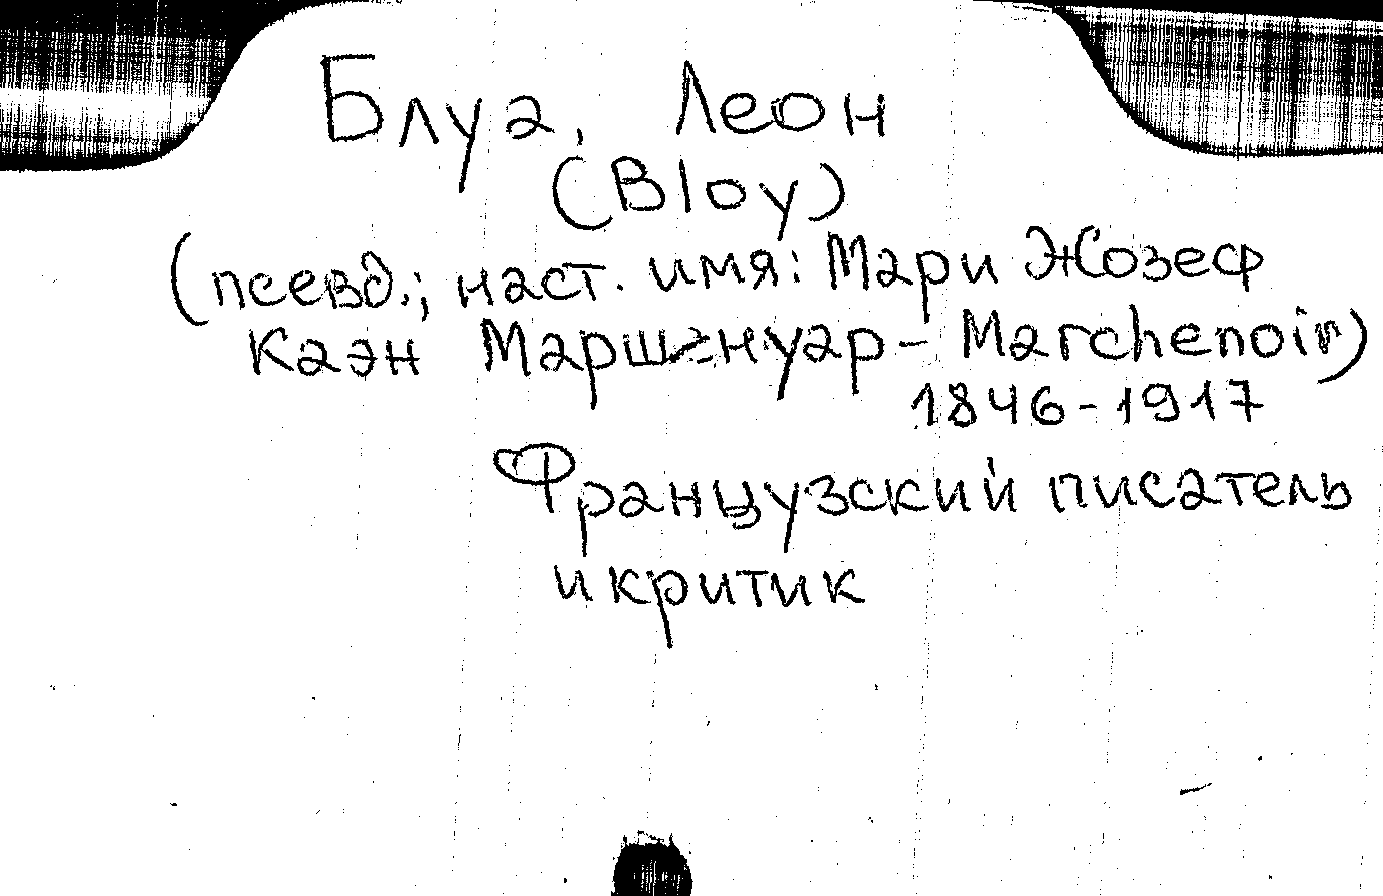 Блуа, Леон
(Bloy)
(псевд.; наст. имя: Мари Жозеф
Каэн Маршенуар - Marchenoir)
1846-1917
Французский писатель
и критик